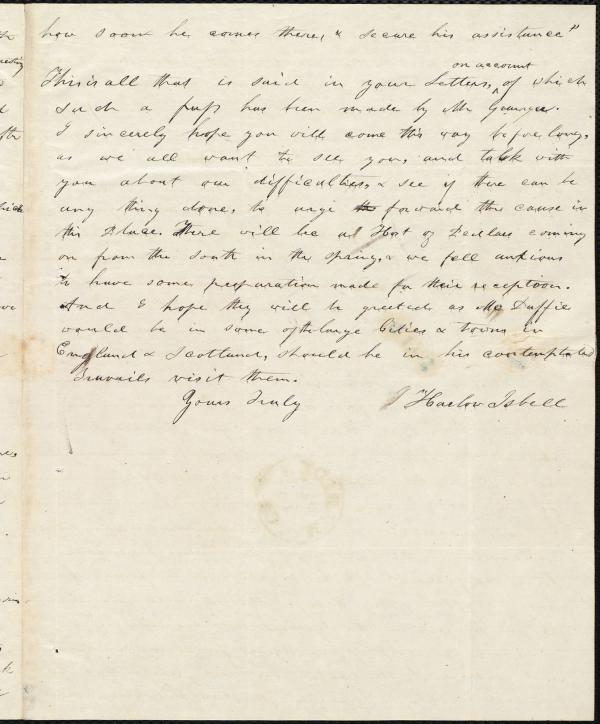 how soon he comes there, & secure his assistance"
on account
This is all that is said in your Letters, ^ of which
such a puff has been made by Mr Granger.
I sincerely hope you will come this way before long,
as we all want to see you, and talk with
you about our difficulties, & see if there can be
any thing done, to urge forward the cause in
this place. There will be a Host of Pedlars coming
on from the south in the spring, & we fell anxious
to have some preparation made for their receptoon.
And I hope they will be greeted, as Mc Duffie
would be in some of the large Cities & towns in
England & Scotland, should he in his contemplated
Travails visit them.
Yours Truly
Harlow Isbell